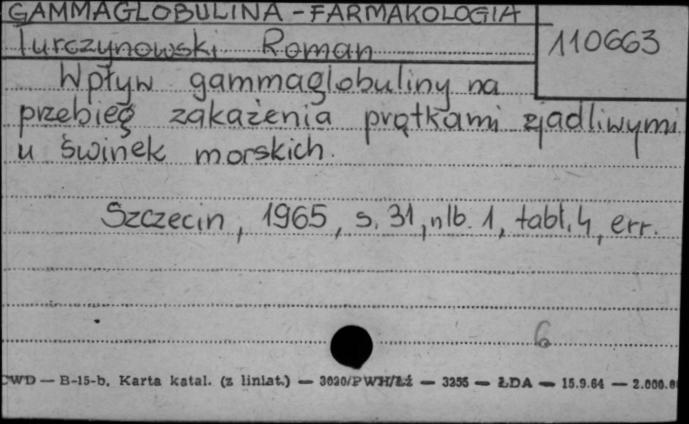 GAMMAGLOBULINA - FARMAKOLOGIA
110663
Turczynowski Roman
Wpływ gammaglobuliny na
przebieg zakażenia prątkami zjadliwymi
u świnek morskich.
Szczecin, 1965, s. 31, nlb. 1, tabl. 4, err.
6
CWD — B-15-b. Karta katal. (z liniat.) — 3020/PWH/Łź — 3255 — ŁDA — 15.9.64 — 2.000.0